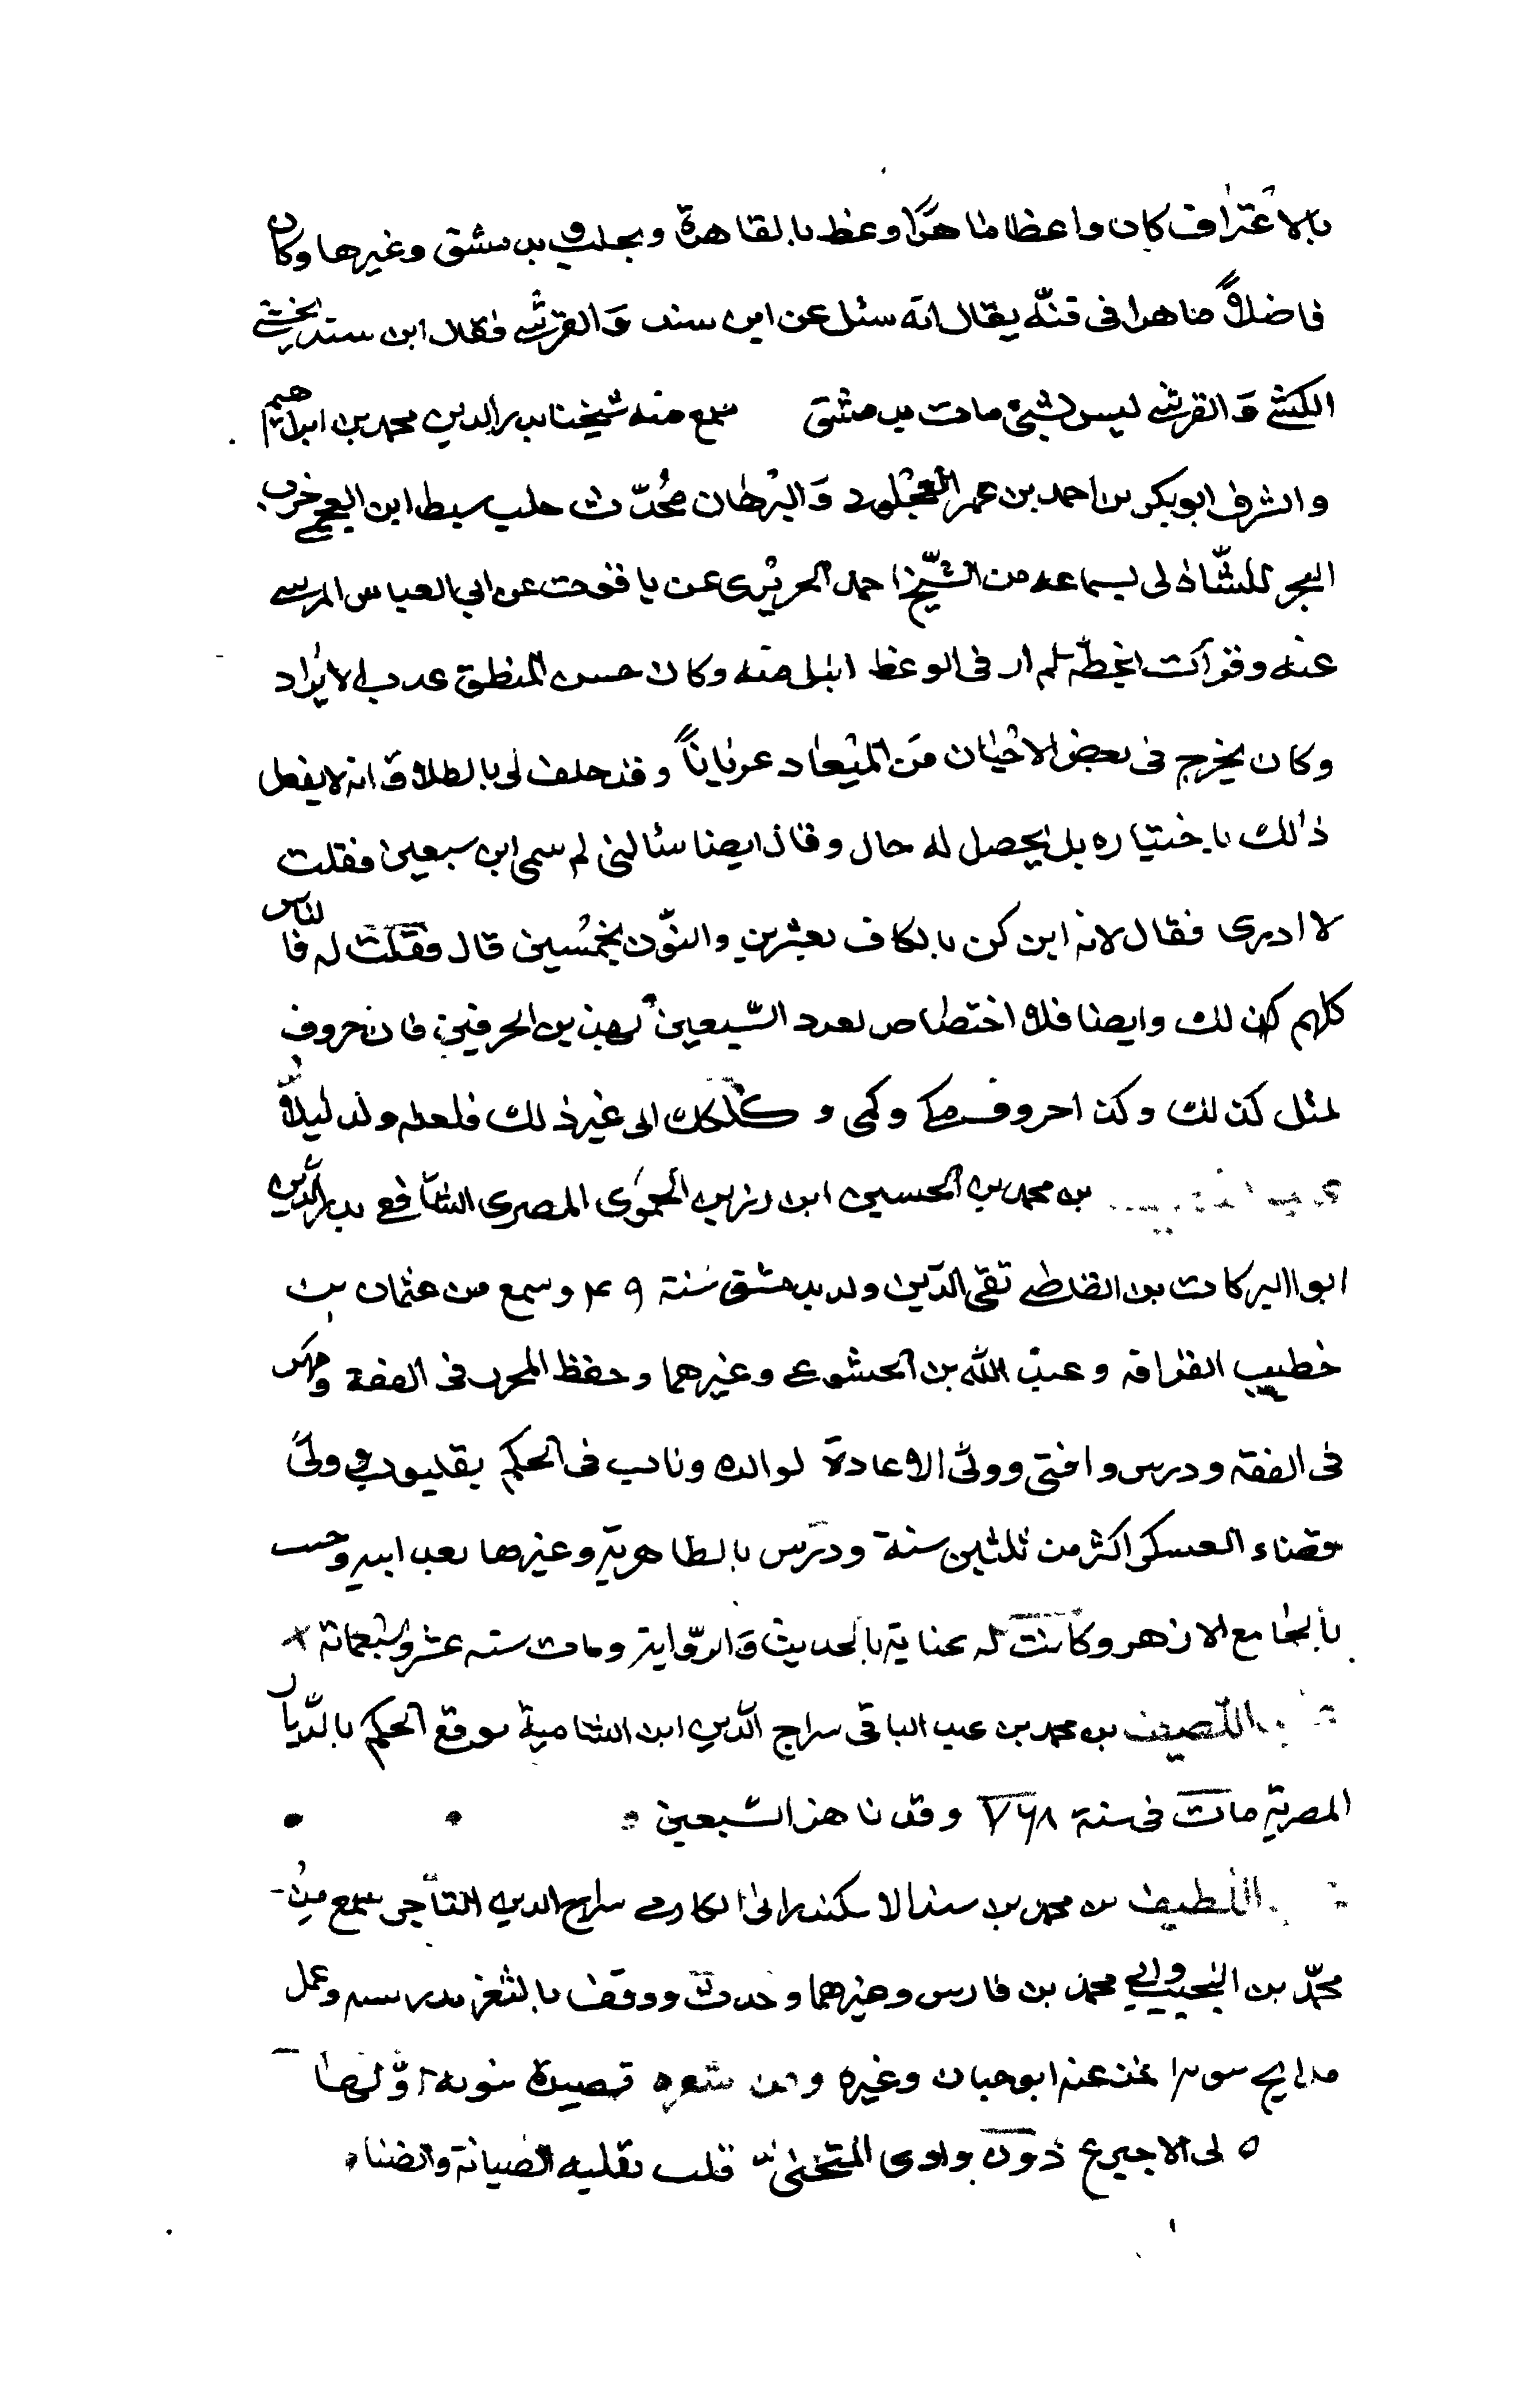 بالاعتراف كان واعظا ماهرا وعظ بالقاهرة وبحلب وبدمشق وغيرها وكان
فاضلاً ماهرا فى فنّه يقال انه سئل عن ابن سند والقرشى فقال ابن سند يخشى
الكشى والقرشى ليس بشئ مات بدمشق سمع منه شيخنا بدر الدين محمد بن ابراهيم
والشرف ابو بكر بن احمد بن عمر العجلونى والبرهان محدّث حلب سبط ابن العجمى حزب
البحر للشاذلى بسماعه من الشّيخ احمد الحريرى عن ياقوت عن ابى العباس المرسى
عنه وقرأت بخطّه لم ار فى الوعظ انبل منه وكان حسن المنطق عذب الايراد
وكان يخرج فى بعض الاحيان من الميعاد عرياناً وقد حلف لى بالطلاق انه لا يفعل
ذلك باختياره بل يحصل له حال وقال ايضا سألنى لم سمى ابن سبعين فقلت
لا ادرى فقال لانه ابن كن بالكاف بعشرين والنّون بخمسين قال فقلت له فالناس
كلهم كذلك وايضا فلا اختصاص لعدد السّبعين بهذين الحرفين فان حروف
لمثل كذلك وكذا حروف مكى وكمى و الى غير ذلك فلعله ولد ليلاً
بن محمد بن الحسين ابن رزين الحموى المصرى الشافعى بدر الدّين
ابو البركات بن القاضى تقى الدّين ولد بدمشق سنة ٤٩ وسمع من عثمان بن
خطيب القرافة وعبد الله بن الخشوعى وغيرهما وحفظ المحرر فى الفقه ومهر
فى الفقه ودرس وافتى وولى الاعادة لوالده وناب فى الحكم بقليوب وولى
قضاء العسكر اكثر من ثلثين سنة ودرّس بالظاهرية وغيرها بعد ابيه وخطب
بالجامع الازهر وكانت له عناية بالحديث والرّواية ومات سنه عشر وسبعمائة
اللطيف بن محمد بن عبد الباقى سراج الدّين ابن الشامية موقع الحكم بالدّيار
المصرية مات فى سنة ٧٦٨ وقد ناهز السّبعين
اللطيف بن محمد بن سند الاسكندرانى الكارمى سراج الدين التّاجر سمع من
محمّد بن النجيب وابى محمد بن فارس وغيرهما وحدث ووقف بالثغر مدرسه وعمل
مدايح عنه ابو حيان وغيره ومن شعره قصيدة نبويه اوّلها
لى الاجيرع دون وادى المنحنى قلب تقلبه الصبابة والضنا